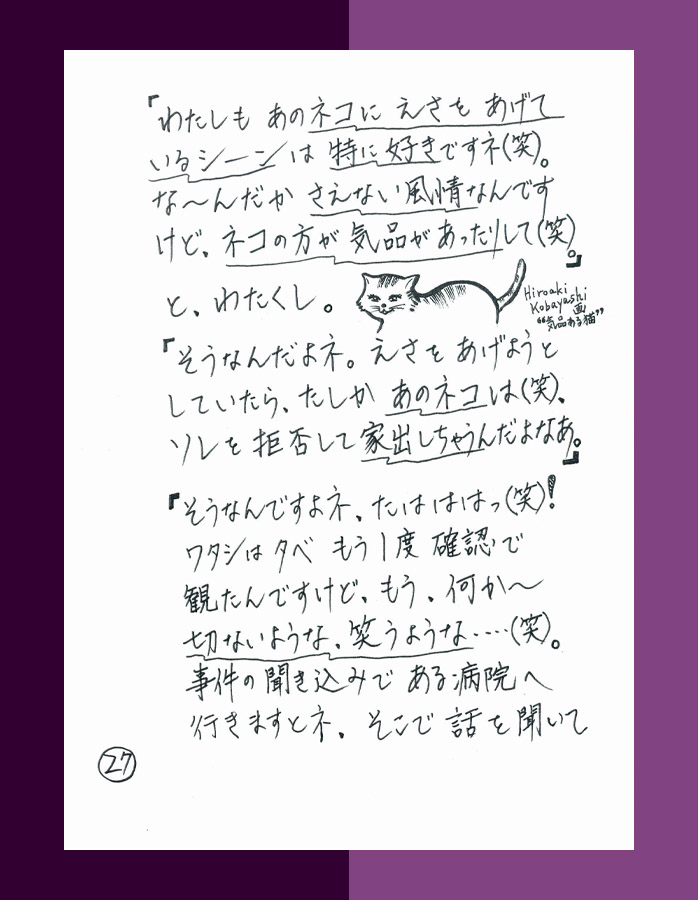 『わたしも あのネコに えさを あげて
いるシーン は 特に好きですネ(笑)。
な〜んだか さえない風情なんです
けど、ネコの方が 気品があったりして(笑)。』
と、わたくし。
Hiroaki
Kobayashi
画
“気品ある猫”
『そうなんだよネ。えさを あげようと
していたら、たしか あのネコは(笑)、
ソレを 拒否して 家出しちゃうんだよなあ。』
『そうなんですよネ、たはははっ(笑)!
ワタシは 夕べ もう1度 確認で
観たんですけど、もう、何か〜
切ないような、笑うような‥‥(笑)。
事件の聞き込みで ある病院へ
行きますとネ、そこで 話を聞いて
27